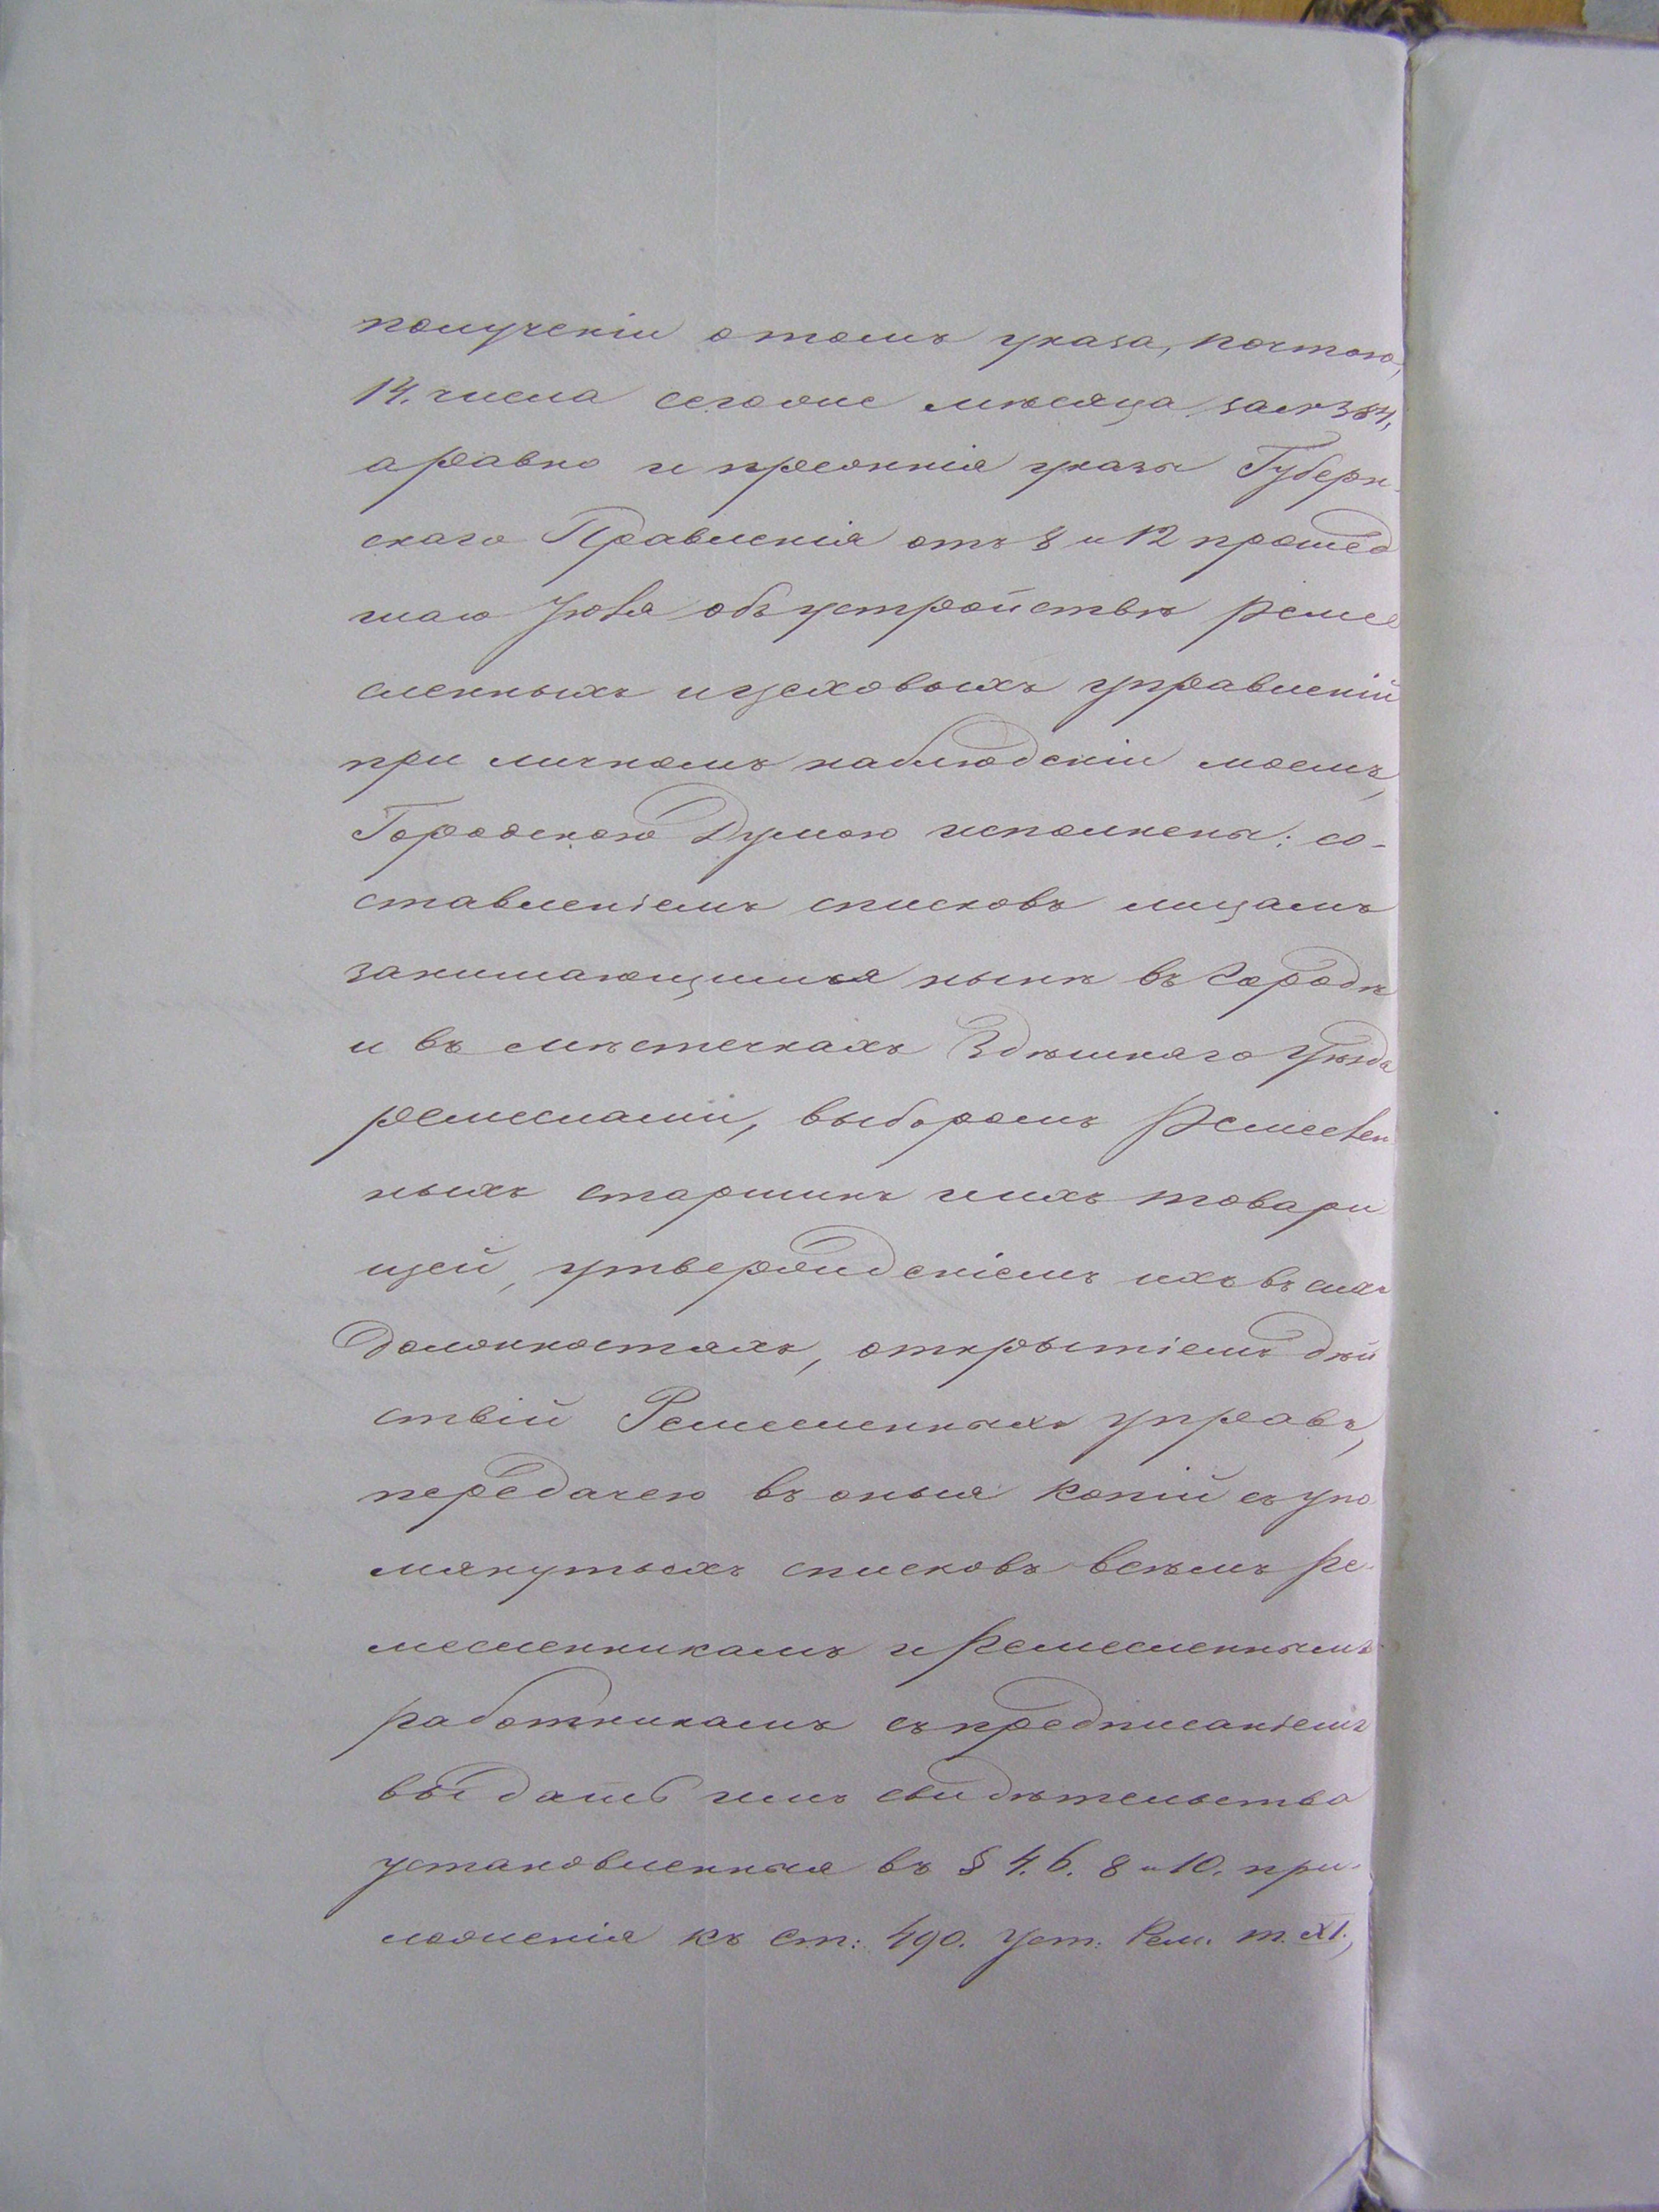 полученіи отомъ указа, почтою,
14. числа сегоже мѣсяца за № 384,
аравно и прежнія указы Губерн-
скаго Правленія отъ 8 и 12 прошед
шаго Іюля объ устройствѣ ремес
сленныхъ ицеховыхъ управленій
при личномъ наблюденіи моемъ,
Городскою Думою исполнены: со-
ставленіемъ списковъ лицамъ
занимающимся нынѣ въ городѣ
и въ мѣстечкахъ Здѣшняго Уѣзда
ремеслами, выборомъ Ремеслен
ныхъ старшинъ иихъ товари
щей, утвержденіемъ ихъ въ сихъ
должностяхъ, открытіемъ дѣй
ствій Ремесленныхъ управъ,
передачею въ оныя копій съ упо
мянутыхъ списковъ всѣмъ ре-
месленникамъ и ремесленнымъ
работникамъ съ предписаніемъ
выдать имъ свидѣтельства
установленныя въ § 4. 6. 8 и 10. при-
ложенія къ ст: 490. Уст: Рем. т. XI.,